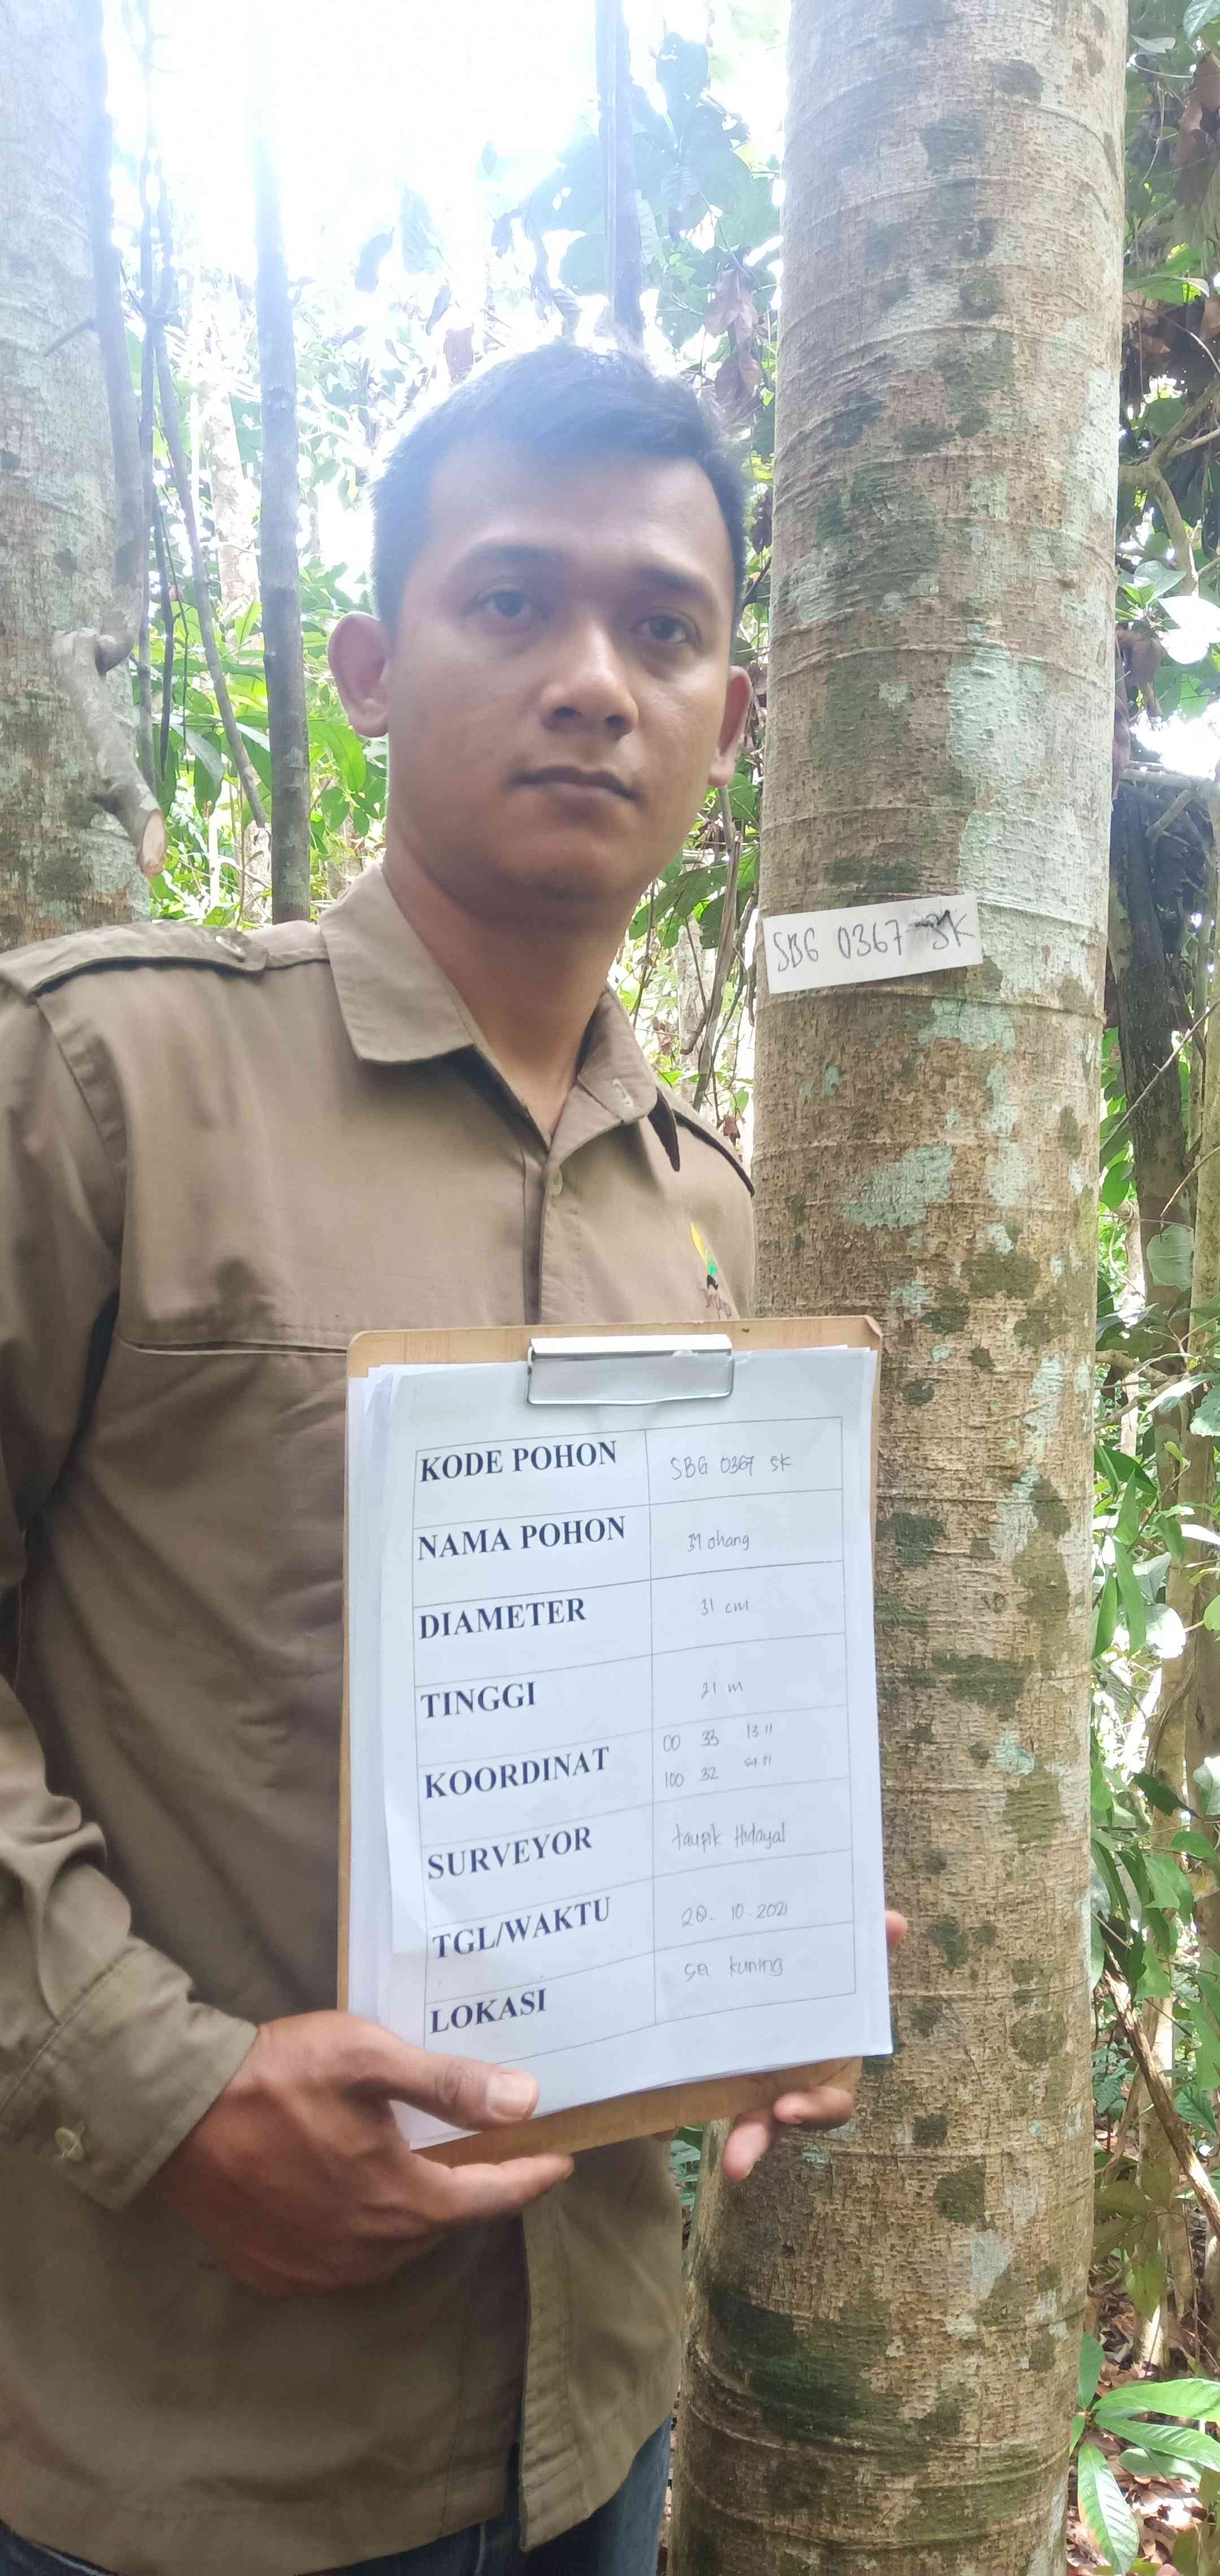 SBG 0367 SK
KODE POHON SBG 0367 SK
NAMA POHON
DIAMETER 31 cm
TINGGI 21 m
KOORDINAT 00 33 13.11
100 32
SURVEYOR taupik Hidayal
TGL/WAKTU 20. 10. 2021
LOKASI kuning